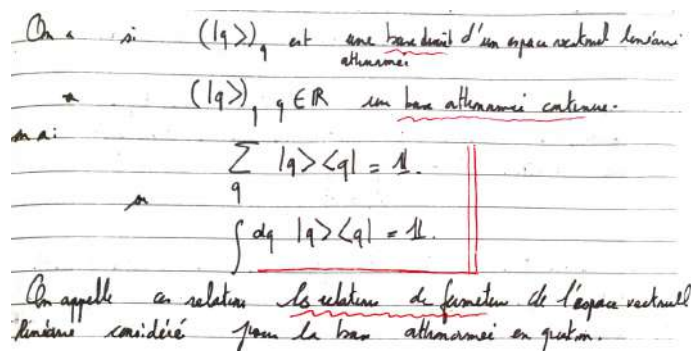 On a si (|q>)_q est une base discrète d'un espace vectoriel linéaire
orthonormée
(|q>)_q q ∈ ℝ une base orthonormée continue.
on a:
∑_q |q><q| = 𝟙.
ou
∫ dq |q><q| = 𝟙.
On appelle ces relations les relations de fermeture de l'espace vectoriel
linéaire considéré pour la base orthonormée en question.